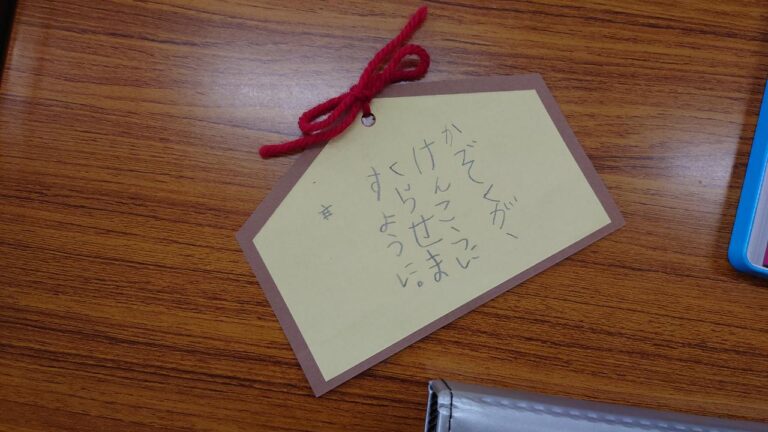 かぞくが、
けんこうに
くらせま
すように。